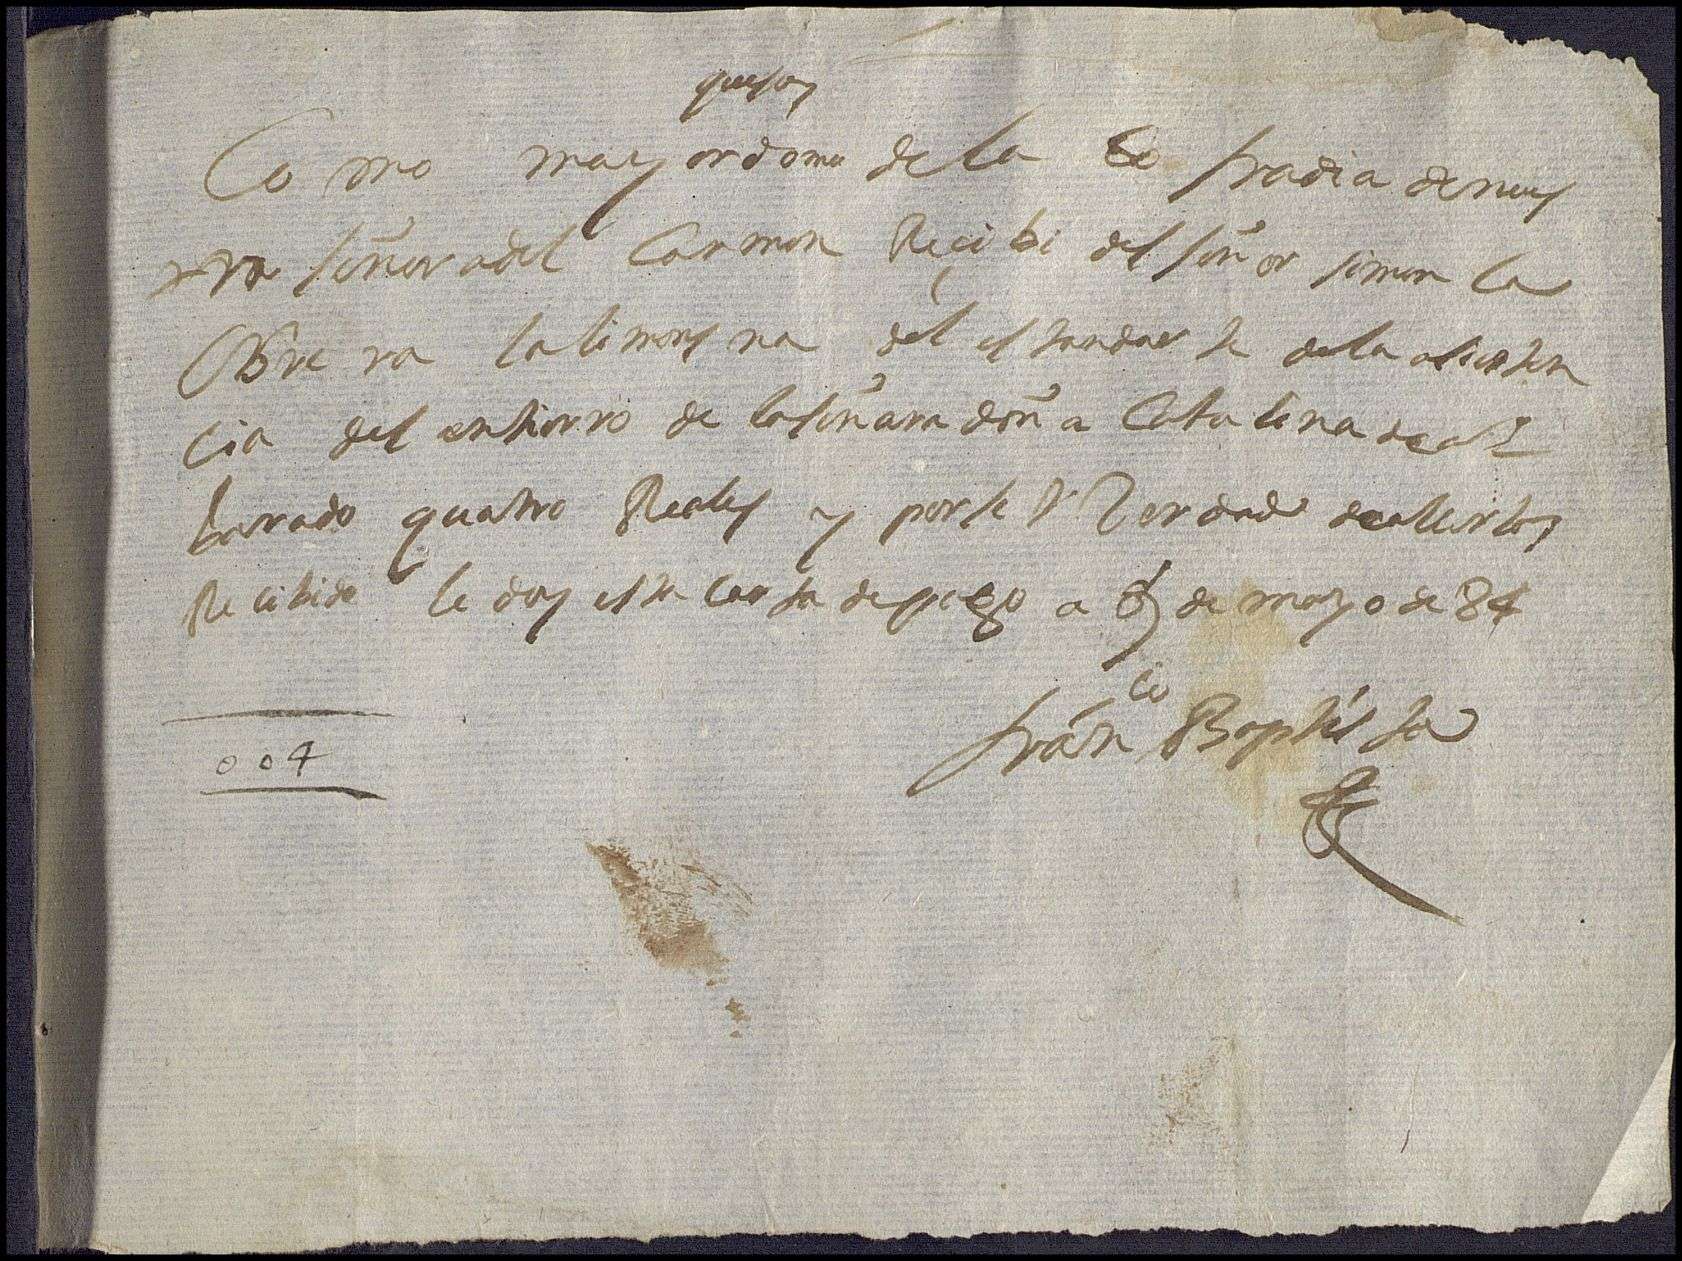 que soy
Como mayordomo de la Cofradia de nues
tra señora del Carmen Recibi del señor simon la
Obrera la limosna del estandarte de la asisten
cia del entierro de la señora doña Catalina de al
barado quatro Reales y por ser Verdad de aberlos
Recibido le doy esta carta de pago a 6 de mayo de 84
franco Baptista
004